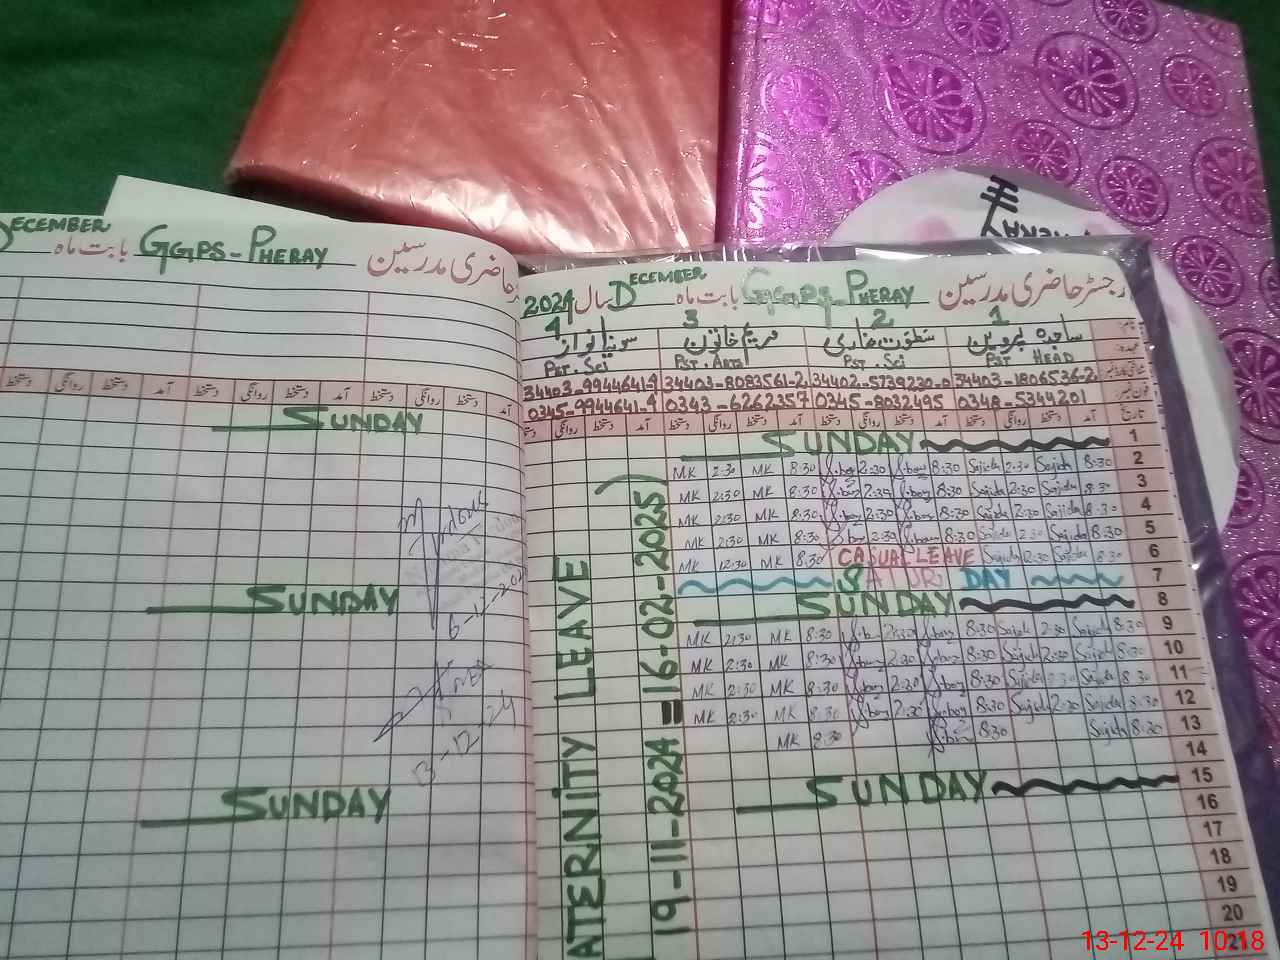 DECEMBER بابت ماہ GGPS-PHERAY حاضری مدرسین
دستخط روانگی دستخط آمد دستخط روانگی دستخط آمد دستخط روانگی دستخط آمد
SUNDAY
SUNDAY
6-12-202
13-12-24
SUNDAY
رجسٹر حاضری مدرسین GGPS-PHERAY بابت ماہ DECEMBER سال 2024
1 2 3 4
ساجدہ پروین
مریم خاتون
سونیا نواز
PST HEAD
PST. Sci
PST. Arts
PST. Sci
34403-9944641-9 34403-8083561-2 34402-5739230-0 34403-1806536-2
0345-9944641-4 0343-6262357 0345-8032495 0348-5344201
تاریخ آمد دستخط روانگی دستخط آمد دستخط روانگی دستخط آمد دستخط روانگی دستخط آمد دستخط روانگی
SUNDAY 1
MK 2:30 MK 8:30 2:30 8:30 Sajida 2:30 Sajida 8:30 2
MK 2:30 MK 8:30 2:30 8:30 Sajida 2:30 Sajida 8:30 3
MK 2:30 MK 8:30 2:30 8:30 Sajida 2:30 Sajida 8:30 4
MK 2:30 MK 8:30 2:30 8:30 Sajida 2:30 Sajida 8:30 5
MK 12:30 MK 8:30 CASUAL LEAVE Sajida 2:30 Sajida 8:30 6
SATURDAY 7
SUNDAY 8
MK 2:30 MK 8:30 2:30 8:30 Sajida 2:30 Sajida 8:30 9
MK 2:30 MK 8:30 2:30 8:30 Sajida 2:30 Sajida 8:30 10
MK 2:30 MK 8:30 2:30 8:30 Sajida 2:30 Sajida 8:30 11
MK 2:30 MK 8:30 2:30 8:30 Sajida 2:30 Sajida 8:30 12
MK 8:30 8:30 Sajida 8:30 13
14
SUNDAY 15
16
17
18
19
20
21
ATERNITY LEAVE
19-11-2024 = 16-02-2025)
13-12-24 10:18